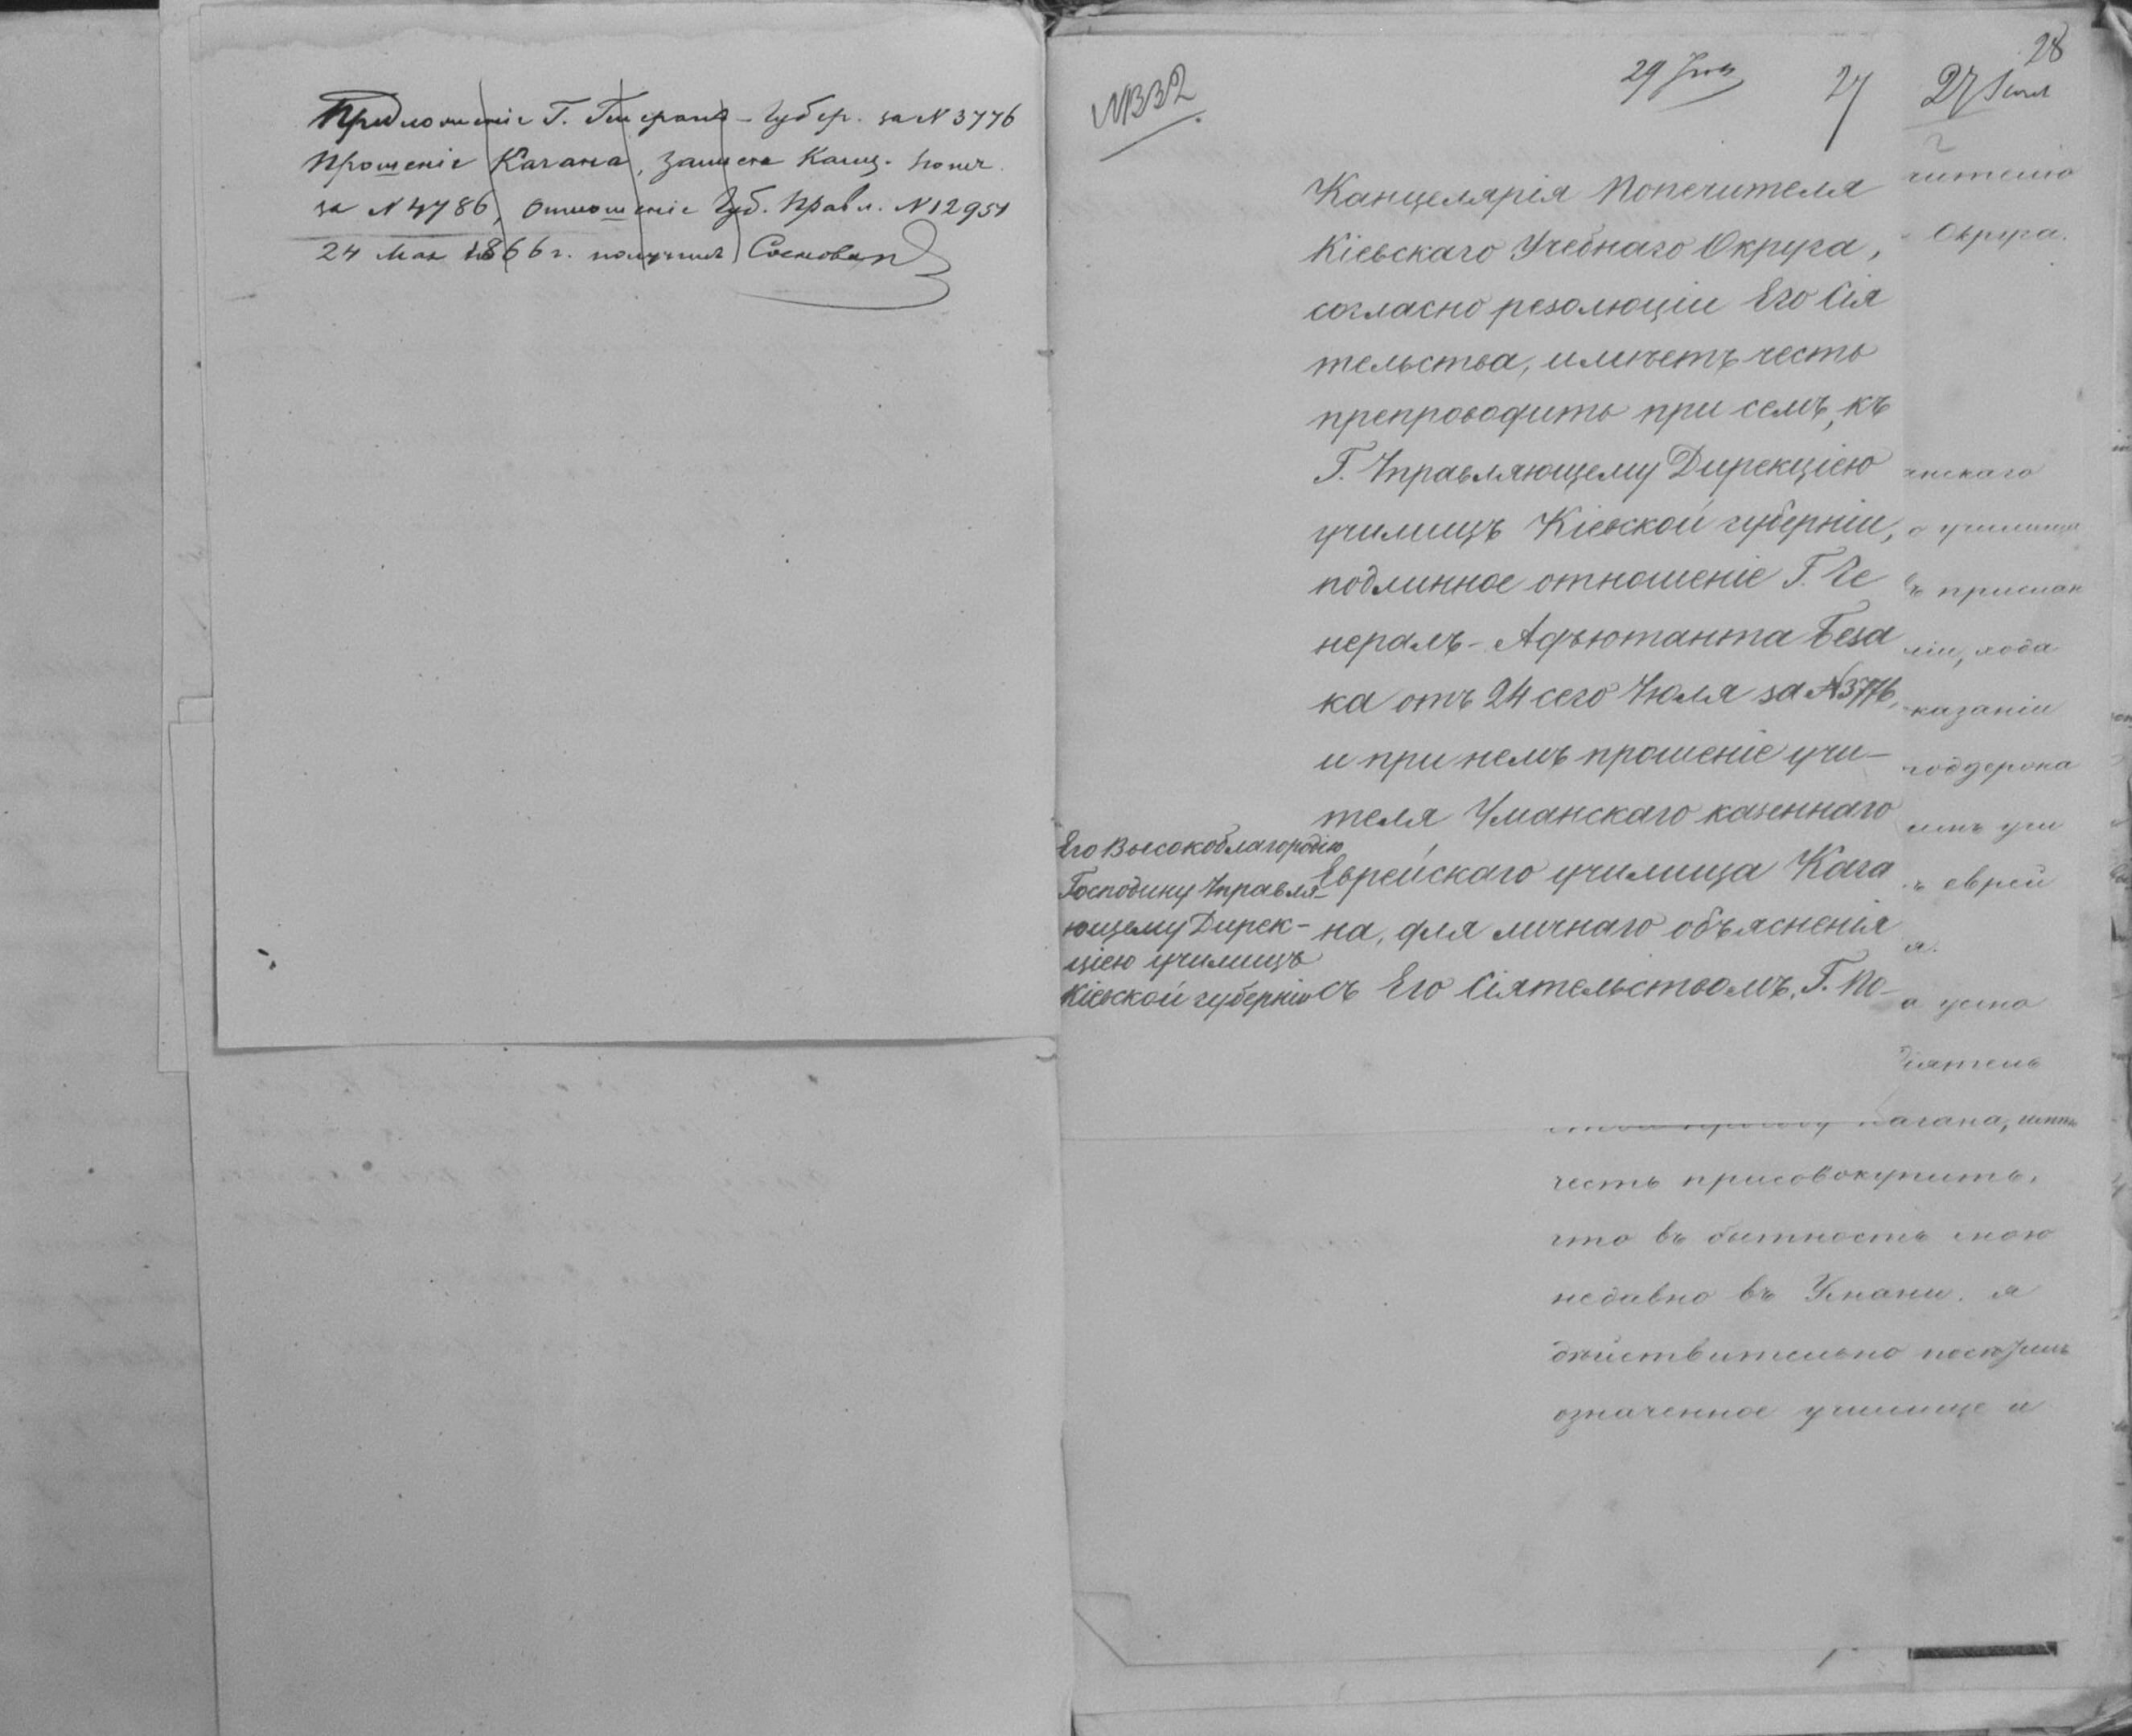 Предложеніе Г. Генерал-Губер. за N 3776
Прошеніе Кагана, записка Канц. Попеч.
за N 4786, Отношеніе Губ. Правл. N 12951
24 Мая 1866 г. получил
N 1332
29
27
27
28
Канцелярія Попечителя
Кіевскаго Учебнаго Округа,
согласно резолюціи Его Сія
тельства, имѣетъ честь
препроводить при семъ, къ
Г. Управляющему Дирекціею
училищъ Кіевской губерніи,
подлинное отношеніе Г. Ге
нералъ-Адъютанта Беза
ка отъ 24 сего Іюля за N 3776,
и при немъ прошеніе учи-
теля Уманскаго казеннаго
Еврейскаго училища Кага
на, для личнаго объясненія
съ Его Сіятельствомъ, Г. По-
Его Высокоблагородію
Господину Управля-
ющему Дирек-
ціею училищъ
Кіевской губерніи
чителю
Округа.
нскаго
о училища
ъ прислан
ліи, хода
казаніи
поддержа
учи
ъ еврей
я.
Сіятель
Кагана,
честь присовокупить,
что въ бытность мою
недавно въ Умани, я
дѣйствительно посѣтилъ
означенное училище и